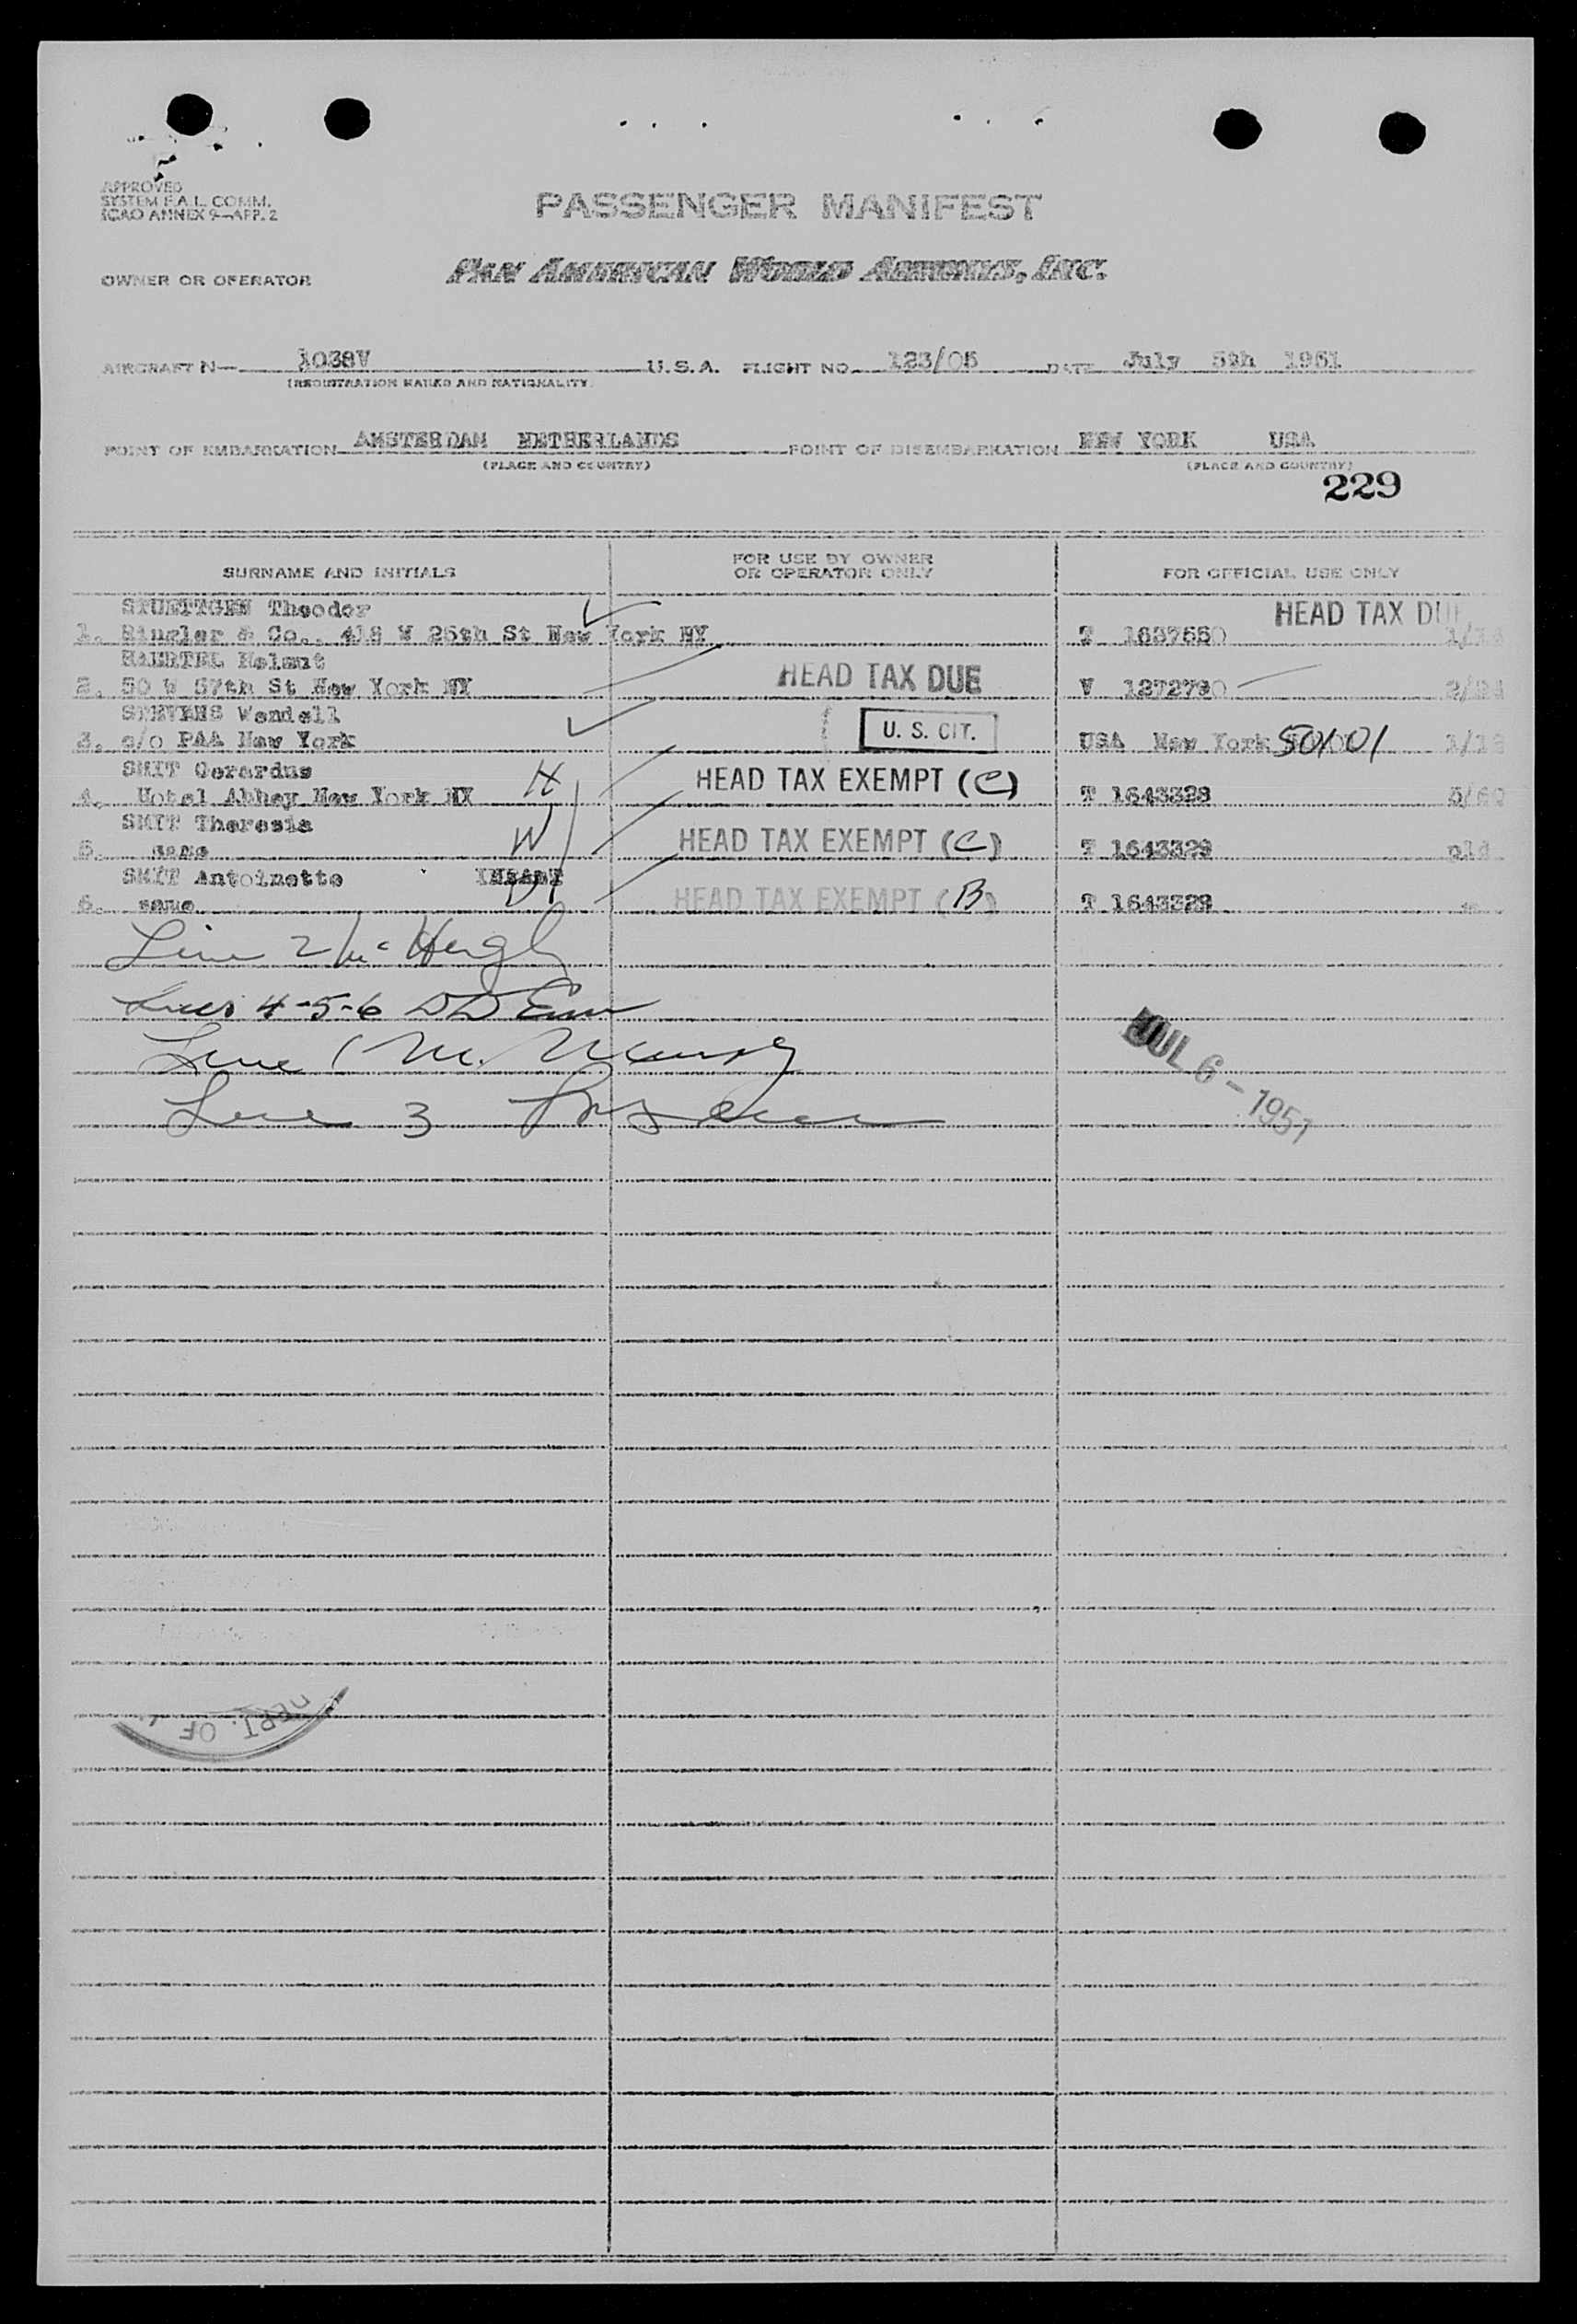 APPROVED
SYSTEM F.A.L. COMM.
ICAO ANNEX 9—APP. 2
PASSENGER MANIFEST
OWNER OR OPERATOR
PAN AMERICAN WORLD AIRWAYS, INC.
AIRCRAFT N— 1038V U.S.A. FLIGHT NO. 123/05 DATE July 5th 1951
(REGISTRATION MARKS AND NATIONALITY)
POINT OF EMBARKATION AMSTERDAM NETHERLANDS POINT OF DISEMBARKATION NEW YORK USA
(PLACE AND COUNTRY) (PLACE AND COUNTRY)
229
SURNAME AND INITIALS FOR USE BY OWNER OR OPERATOR ONLY FOR OFFICIAL USE ONLY
STUETTGEN Theodor HEAD TAX DUE
1. Ringler & Co., 418 W 25th St New York NY T 1637550
Helmut
2. 50 W 57th St New York NY HEAD TAX DUE V 1272790 2/24
STEVENS Wendell
3. c/o PAA New York U. S. CIT. USA New York 50101
SMIT Gerardus H
4. Hotel Abbey New York NY HEAD TAX EXEMPT (C) T 1643328
SMIT Theresia W
5. same HEAD TAX EXEMPT (C) T 1643329 pld
SMIT Antoinette INFANT
6. same HEAD TAX EXEMPT (B) T 1643329
Line 2
Lines 4-5-6 DD
Line 1 M.
Line 3
JUL 6 - 1951
DEPT. OF